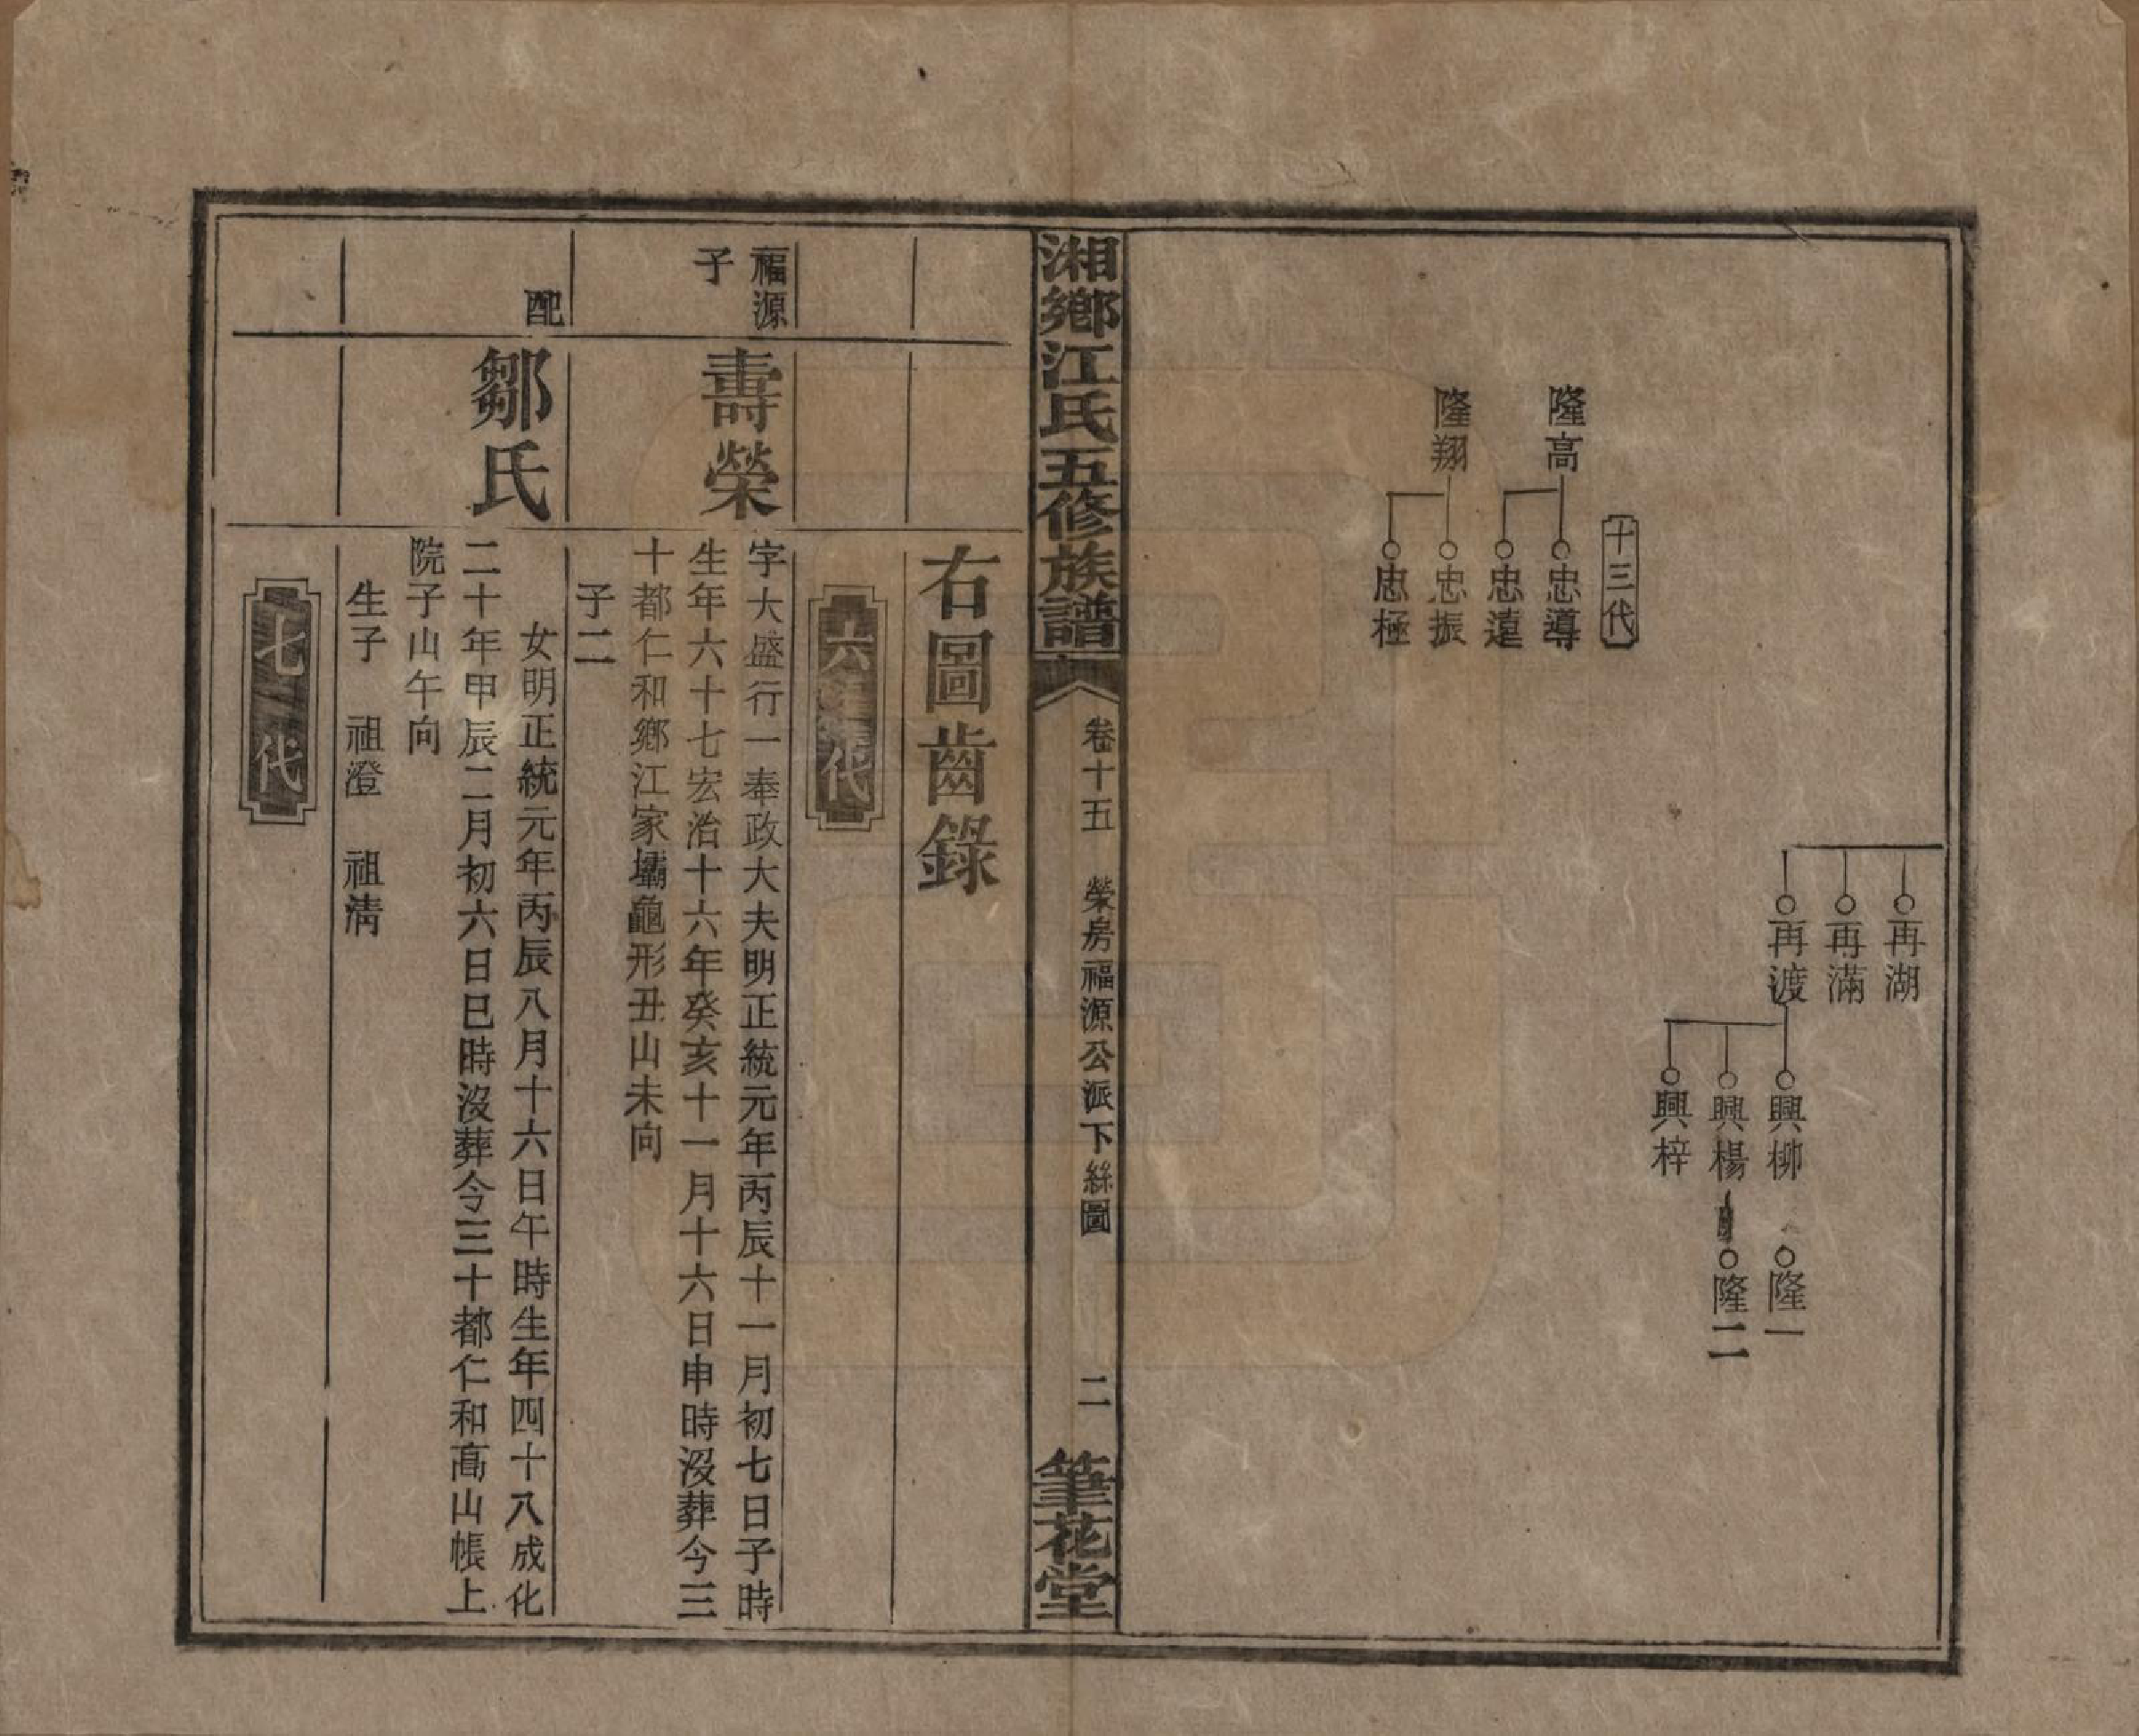 再湖
再滿
再渡
興柳
興楊
興梓
隆一
隆二
十三代
隆高
忠導
忠遠
隆翔
忠振
忠極
湘鄉江氏五修族譜
卷十五
榮房福源公派下絲圖
二
筆花堂
右圖齒錄
六代
福源
子
壽榮
字大盛行一奉政大夫明正統元年丙辰十一月初七日子時
生年六十七宏治十六年癸亥十一月十六日申時沒葬今三
十都仁和鄉江家壩龜形丑山未向
子二
配
鄒氏
女明正統元年丙辰八月十六日午時生年四十八成化
二十年甲辰二月初六日巳時沒葬今三十都仁和高山帳上
院子山午向
生子 祖澄 祖清
七代